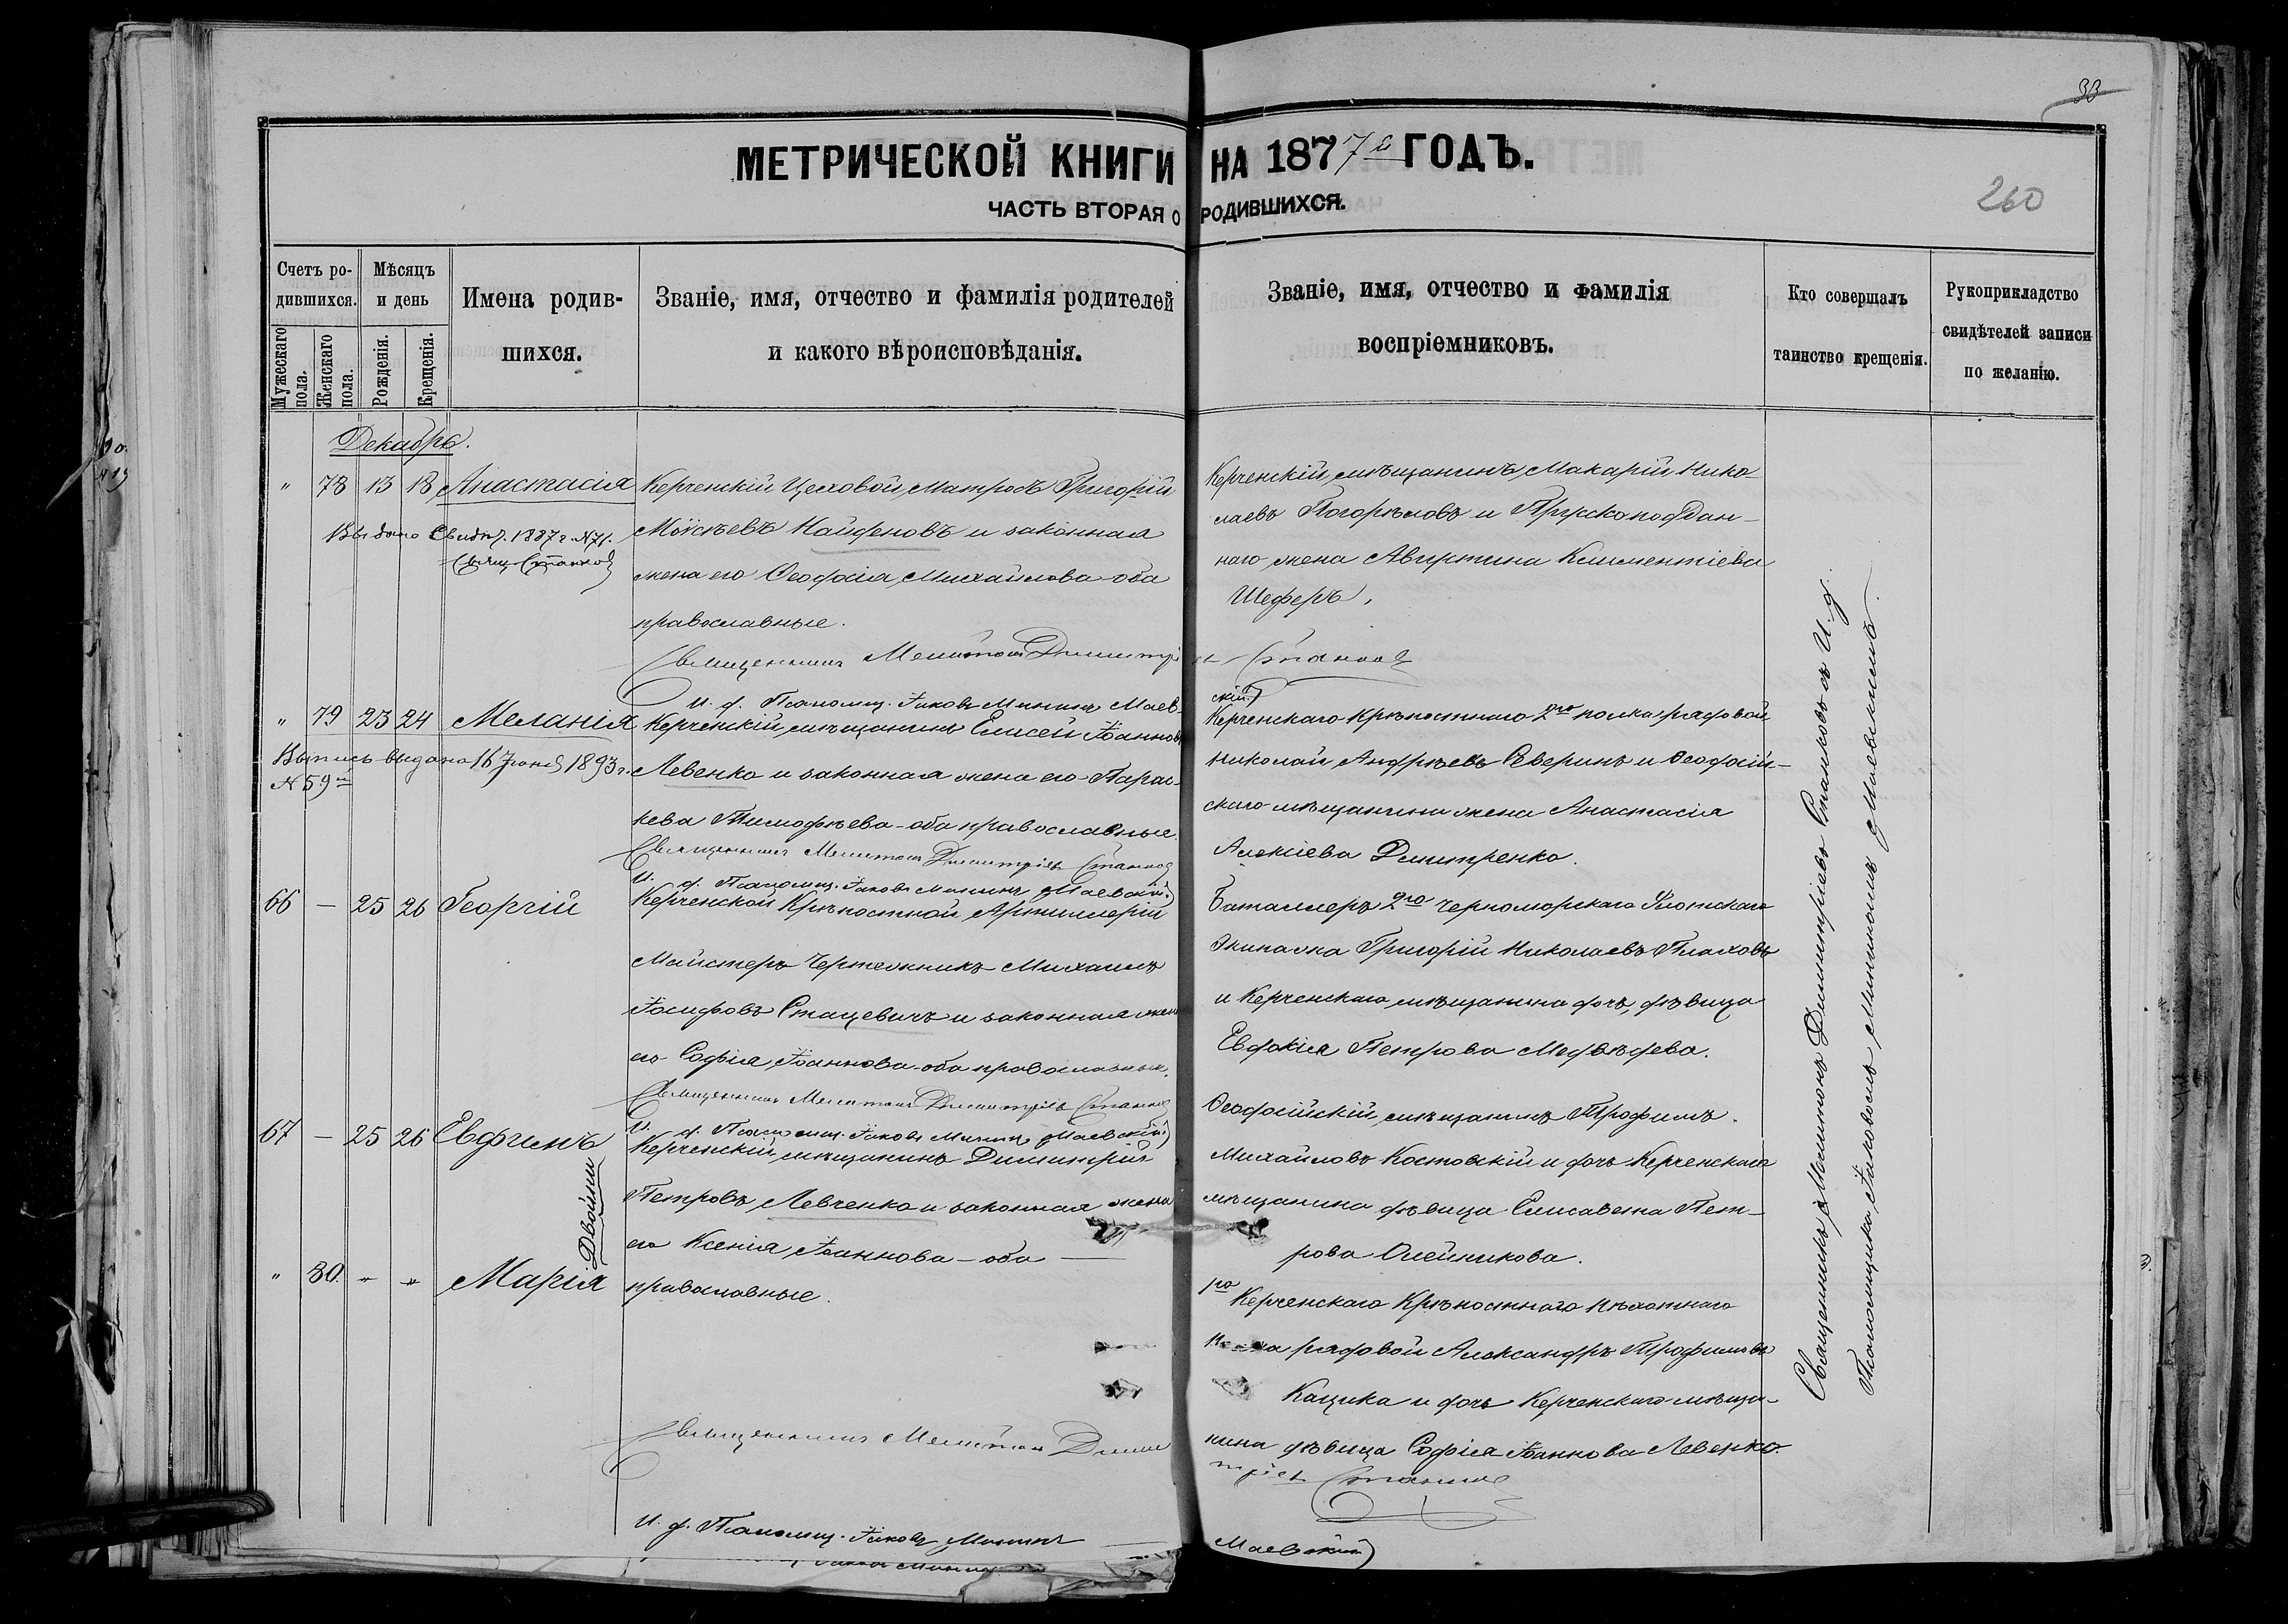 33
МЕТРИЧЕСКОЙ КНИГИ НА 1877й ГОДЪ.
ЧАСТЬ ВТОРАЯ О РОДИВШИХСЯ.
260
Счетъ ро-
дившихся.
Мужескаго пола.
Женскаго пола.
Мѣсяцъ
и день
Рожденія.
Крещенія.
Имена родив-
шихся.
Званіе, имя, отчество и фамилія родителей
и какого вѣроисповѣданія.
Званіе, имя, отчество и фамилія
воспріемниковъ.
Кто совершалъ
таинство крещенія.
Рукоприкладство
свидѣтелей записи
по желанію.
Декабрь.
" 78 13 18 Анастасія
Выдано Свидѣт. 1887 г. №71.
Свящ. Станков
Керченскій Цеховой Матросъ Григорій
Моѵсѣевъ Найденовъ и законная
жена его Ѳеодосія Михайлова оба
православные.
Керченскій мѣщанинъ Макарій Нико-
лаевъ Погорѣловъ и Прусскоподдан-
наго жена Августина Климентіева
Шеферъ.
Священникъ Мелитонъ Димитріев Станков
И. д. Псаломщ. Іаковъ Мининъ Маев-
скій
" 79 23 24 Меланія
Выпись выдана 16 Іюня 1893 г.
№ 59
Керченскій мѣщанинъ Елисей Іоанновъ
Левенко и законная жена его Парас-
кева Тимофѣева - оба православные.
Керченскаго Крѣпостнаго 2го полка рядовой
Николай Андрѣевъ Северинъ и Ѳеодосій-
скаго мѣщанина жена Анастасія
Алексіева Дмитренко.
Священникъ Мелитонъ Димитріевъ Станков
И. д. Псаломщ. Іаковъ Мининъ Маевскій
66 — 25 26 Георгій
Керченской Крѣпостной Артиллеріи
Майстеръ Чертежникъ Михаилъ
Іосифовъ Стацевичъ и законная жена
его Софія Іоаннова - оба православные.
Баталлеръ 2го Черноморскаго Флотскаго
Экипажа Григорій Николаевъ Плаховъ
и Керченскаго мѣщанина дочь, дѣвица
Евдокія Петрова Медвѣдева.
Священникъ Мелитонъ Димитріевъ Станков
И. д. Псаломщ. Іаковъ Мининъ Маевскій
67 — 25 26 Евфимъ
Двойни
Керченскій мѣщанинъ Димитрій
Петровъ Левченко и законная жена
его Ксенія Іоаннова - оба —
православные.
Ѳеодосійскій мѣщанинъ Трофимъ
Михайловъ Костовскій и дочь Керченскаго
мѣщанина дѣвица Елисавета Пет-
рова Олейникова.
" 80. " " Марія
1го Керченскаго Крѣпостнаго пѣхотнаго
рядовой Александръ Трофимовъ
Кацика и дочь Керченскаго мѣща-
нина дѣвица Софія Іоаннова Левенко.
Священникъ Мелитонъ Дими
тріевъ Станков
И. д. Псаломщ. Іаковъ Мининъ
Маевскій
Священникъ Мелитонъ Димитріевъ Станковъ съ И. д.
Псаломщика Іаковомъ Мининомъ Маевскимъ.